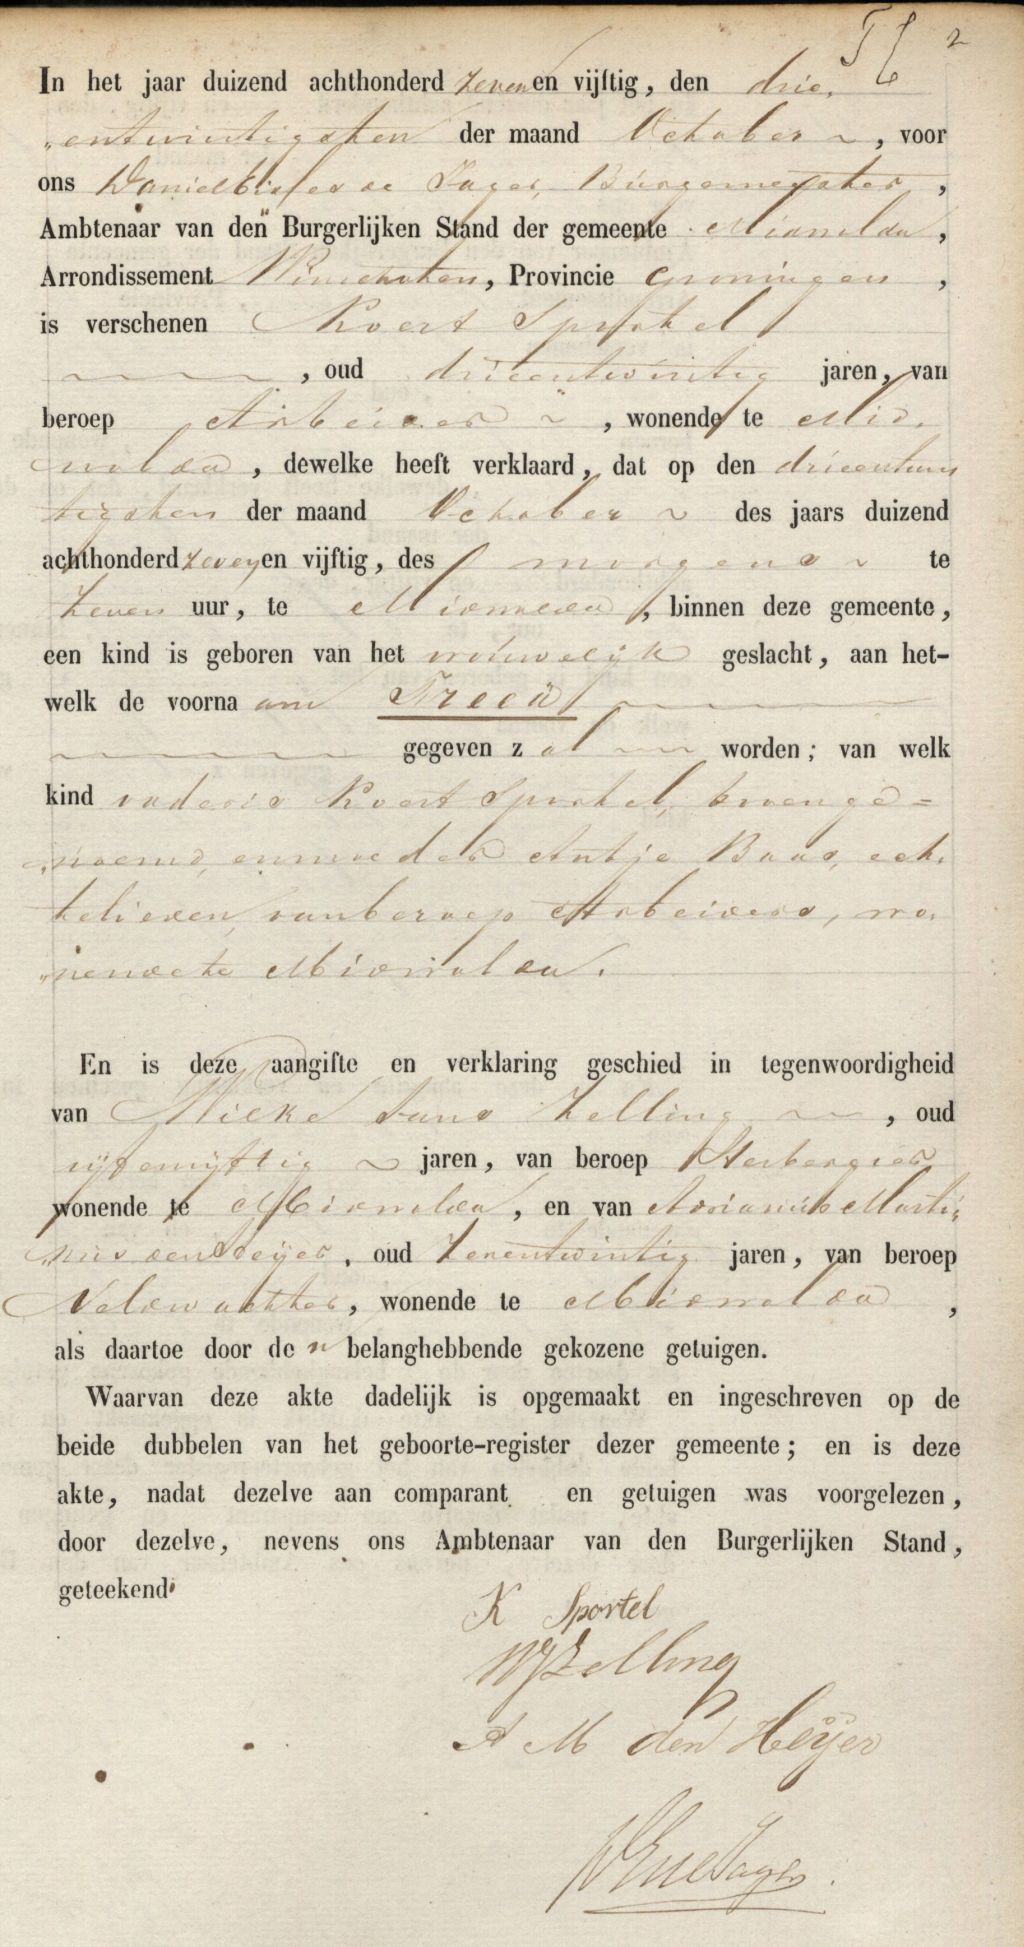 2
In het jaar duizend achthonderd zeven en vijftig, den drie„
„entwintigsten der maand October ~, voor
ons de Jager, Burgemeester,
Ambtenaar van den Burgerlijken Stand der gemeente Midwolda,
Arrondissement Winschoten, Provincie Groningen,
is verschenen Koert Sportel
, oud drieentwintig jaren, van
beroep Arbeider ~, wonende te Mid„
wolda, dewelke heeft verklaard, dat op den drieentwin
tigsten der maand October ~ des jaars duizend
achthonderd zeven en vijftig, des morgens ~ te
zeven uur, te Midwolda, binnen deze gemeente,
een kind is geboren van het vrouwelijk geslacht, aan het-
welk de voorna am
gegeven z al worden; van welk
kind vader is Koert Sportel, bovenge=
„noemd, en moeder Antje Baas, ech„
telieden, van beroep Arbeiders, wo„
„nende te Midwolda.
En is deze aangifte en verklaring geschied in tegenwoordigheid
van Wieke Jans Zelling, oud
vijfenvijftig ~ jaren, van beroep Herbergier
wonende te Midwolda, en van Adrianus Marti„
„nus den Heijer, oud zevenentwintig jaren, van beroep
Veldwachter, wonende te Midwolda,
als daartoe door de n belanghebbende gekozene getuigen.
Waarvan deze akte dadelijk is opgemaakt en ingeschreven op de
beide dubbelen van het geboorte-register dezer gemeente; en is deze
akte, nadat dezelve aan comparant en getuigen was voorgelezen,
door dezelve, nevens ons Ambtenaar van den Burgerlijken Stand,
geteekend.
K Sportel
WJZelling
A M den Heijer
de Jager